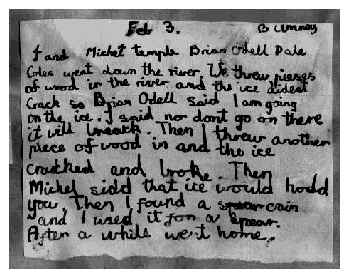 Feb 3. B Umney
I and Michel temple Brian Odell Dale
Coles went down the river. We threw pieses
of wood in the river and the ice didest
crack so Brian Odell said I am going
on the ice. I said no dont go on there
it will break. Then I threw another
piece of wood in and the ice
cracked and broke. Then
Michel sidd that ice would hodd
you. Then I found a coin
and I used it for a spear.
After a while we't home.